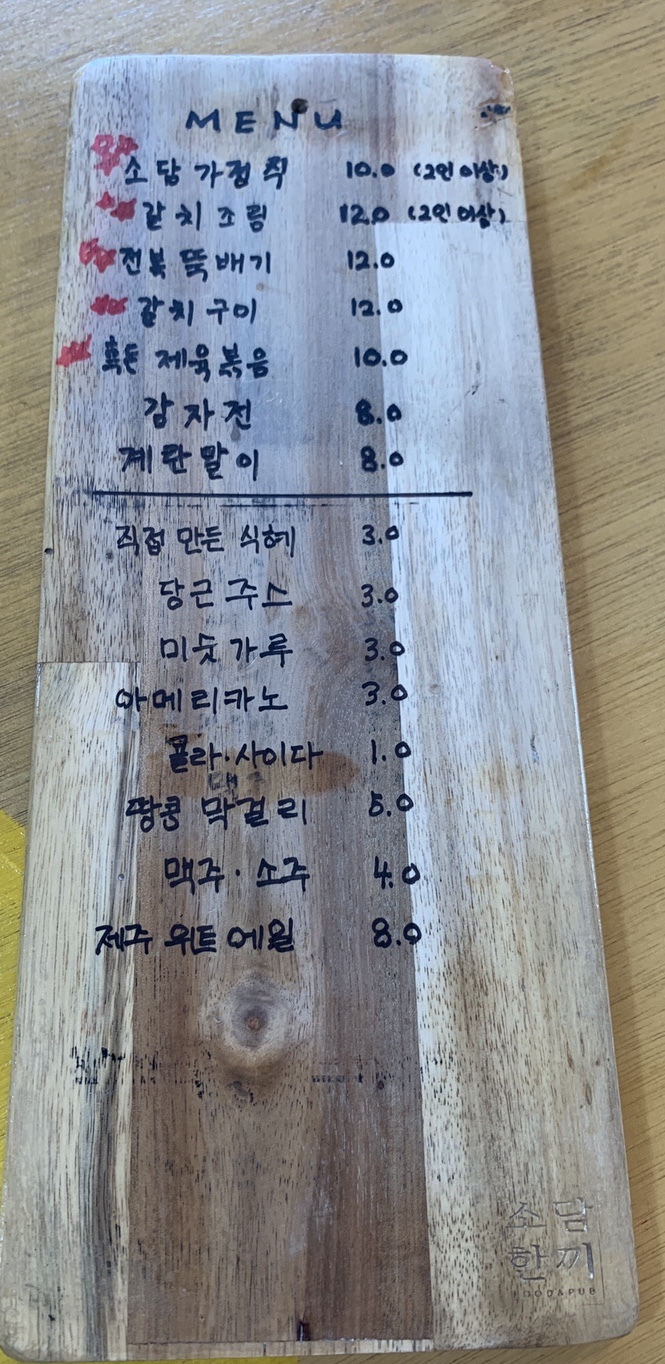 MENU
소담 가정식 10.0 (2인 이상)
갈치 조림 12.0 (2인 이상)
전복 뚝배기 12.0
갈치 구이 12.0
흑돈 제육볶음 10.0
감자전 8.0
계란말이 8.0
직접 만든 식혜 3.0
당근 주스 3.0
미숫가루 3.0
아메리카노 3.0
콜라·사이다 1.0
땅콩 막걸리 5.0
맥주·소주 4.0
제주 위트 에일 8.0
소담
한끼
FOOD&PUB